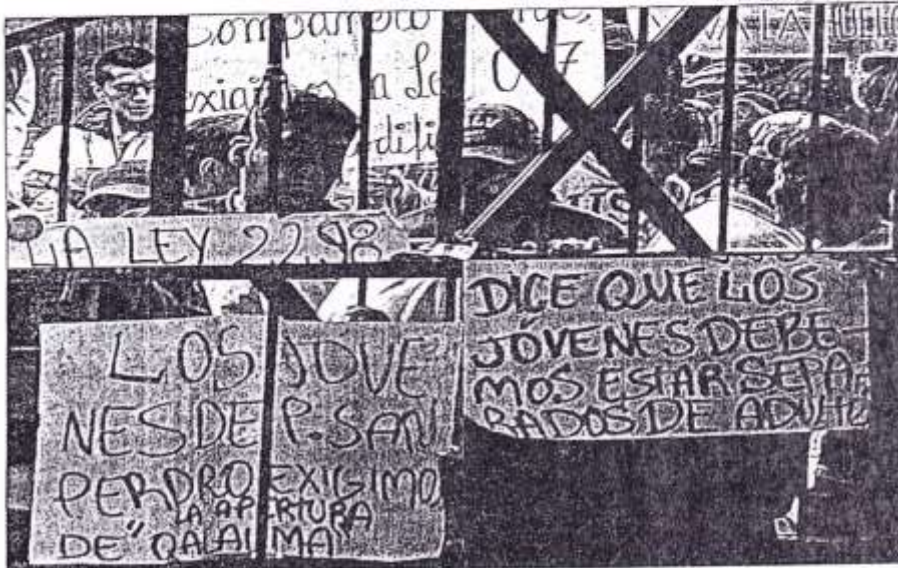 Compañero
exigimos la Le
difi
VIVA LA HUELG
LA LEY 2298
DICE QUE LOS
JÓVENES DEBE-
MOS ESTAR SEPA-
RADOS DE ADULTO
LOS JOVE
NES DE P. SAN
PERDRO EXIGIMOS
LA APERTURA
DE "QALAUMA"